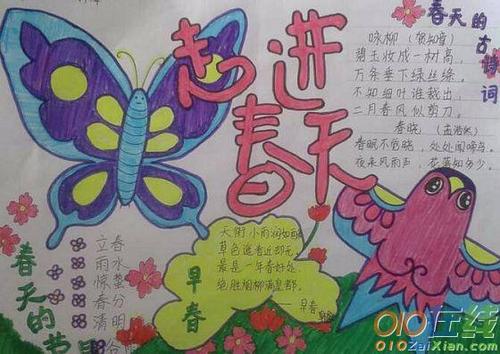 走进
春天
春天的古诗词
咏柳（贺知章）
碧玉妆成一树高，
万条垂下绿丝绦。
不知细叶谁裁出，
二月春风似剪刀。
春晓（孟浩然）
春眠不觉晓，处处闻啼鸟。
夜来风雨声，花落知多少。
早春
天街小雨润如酥
草色遥看近却无
最是一年春好处
绝胜烟柳满皇都
——早春
春天的节
立春
雨水
惊蛰
春分
清明
谷
010在线
010ZaiXian.com